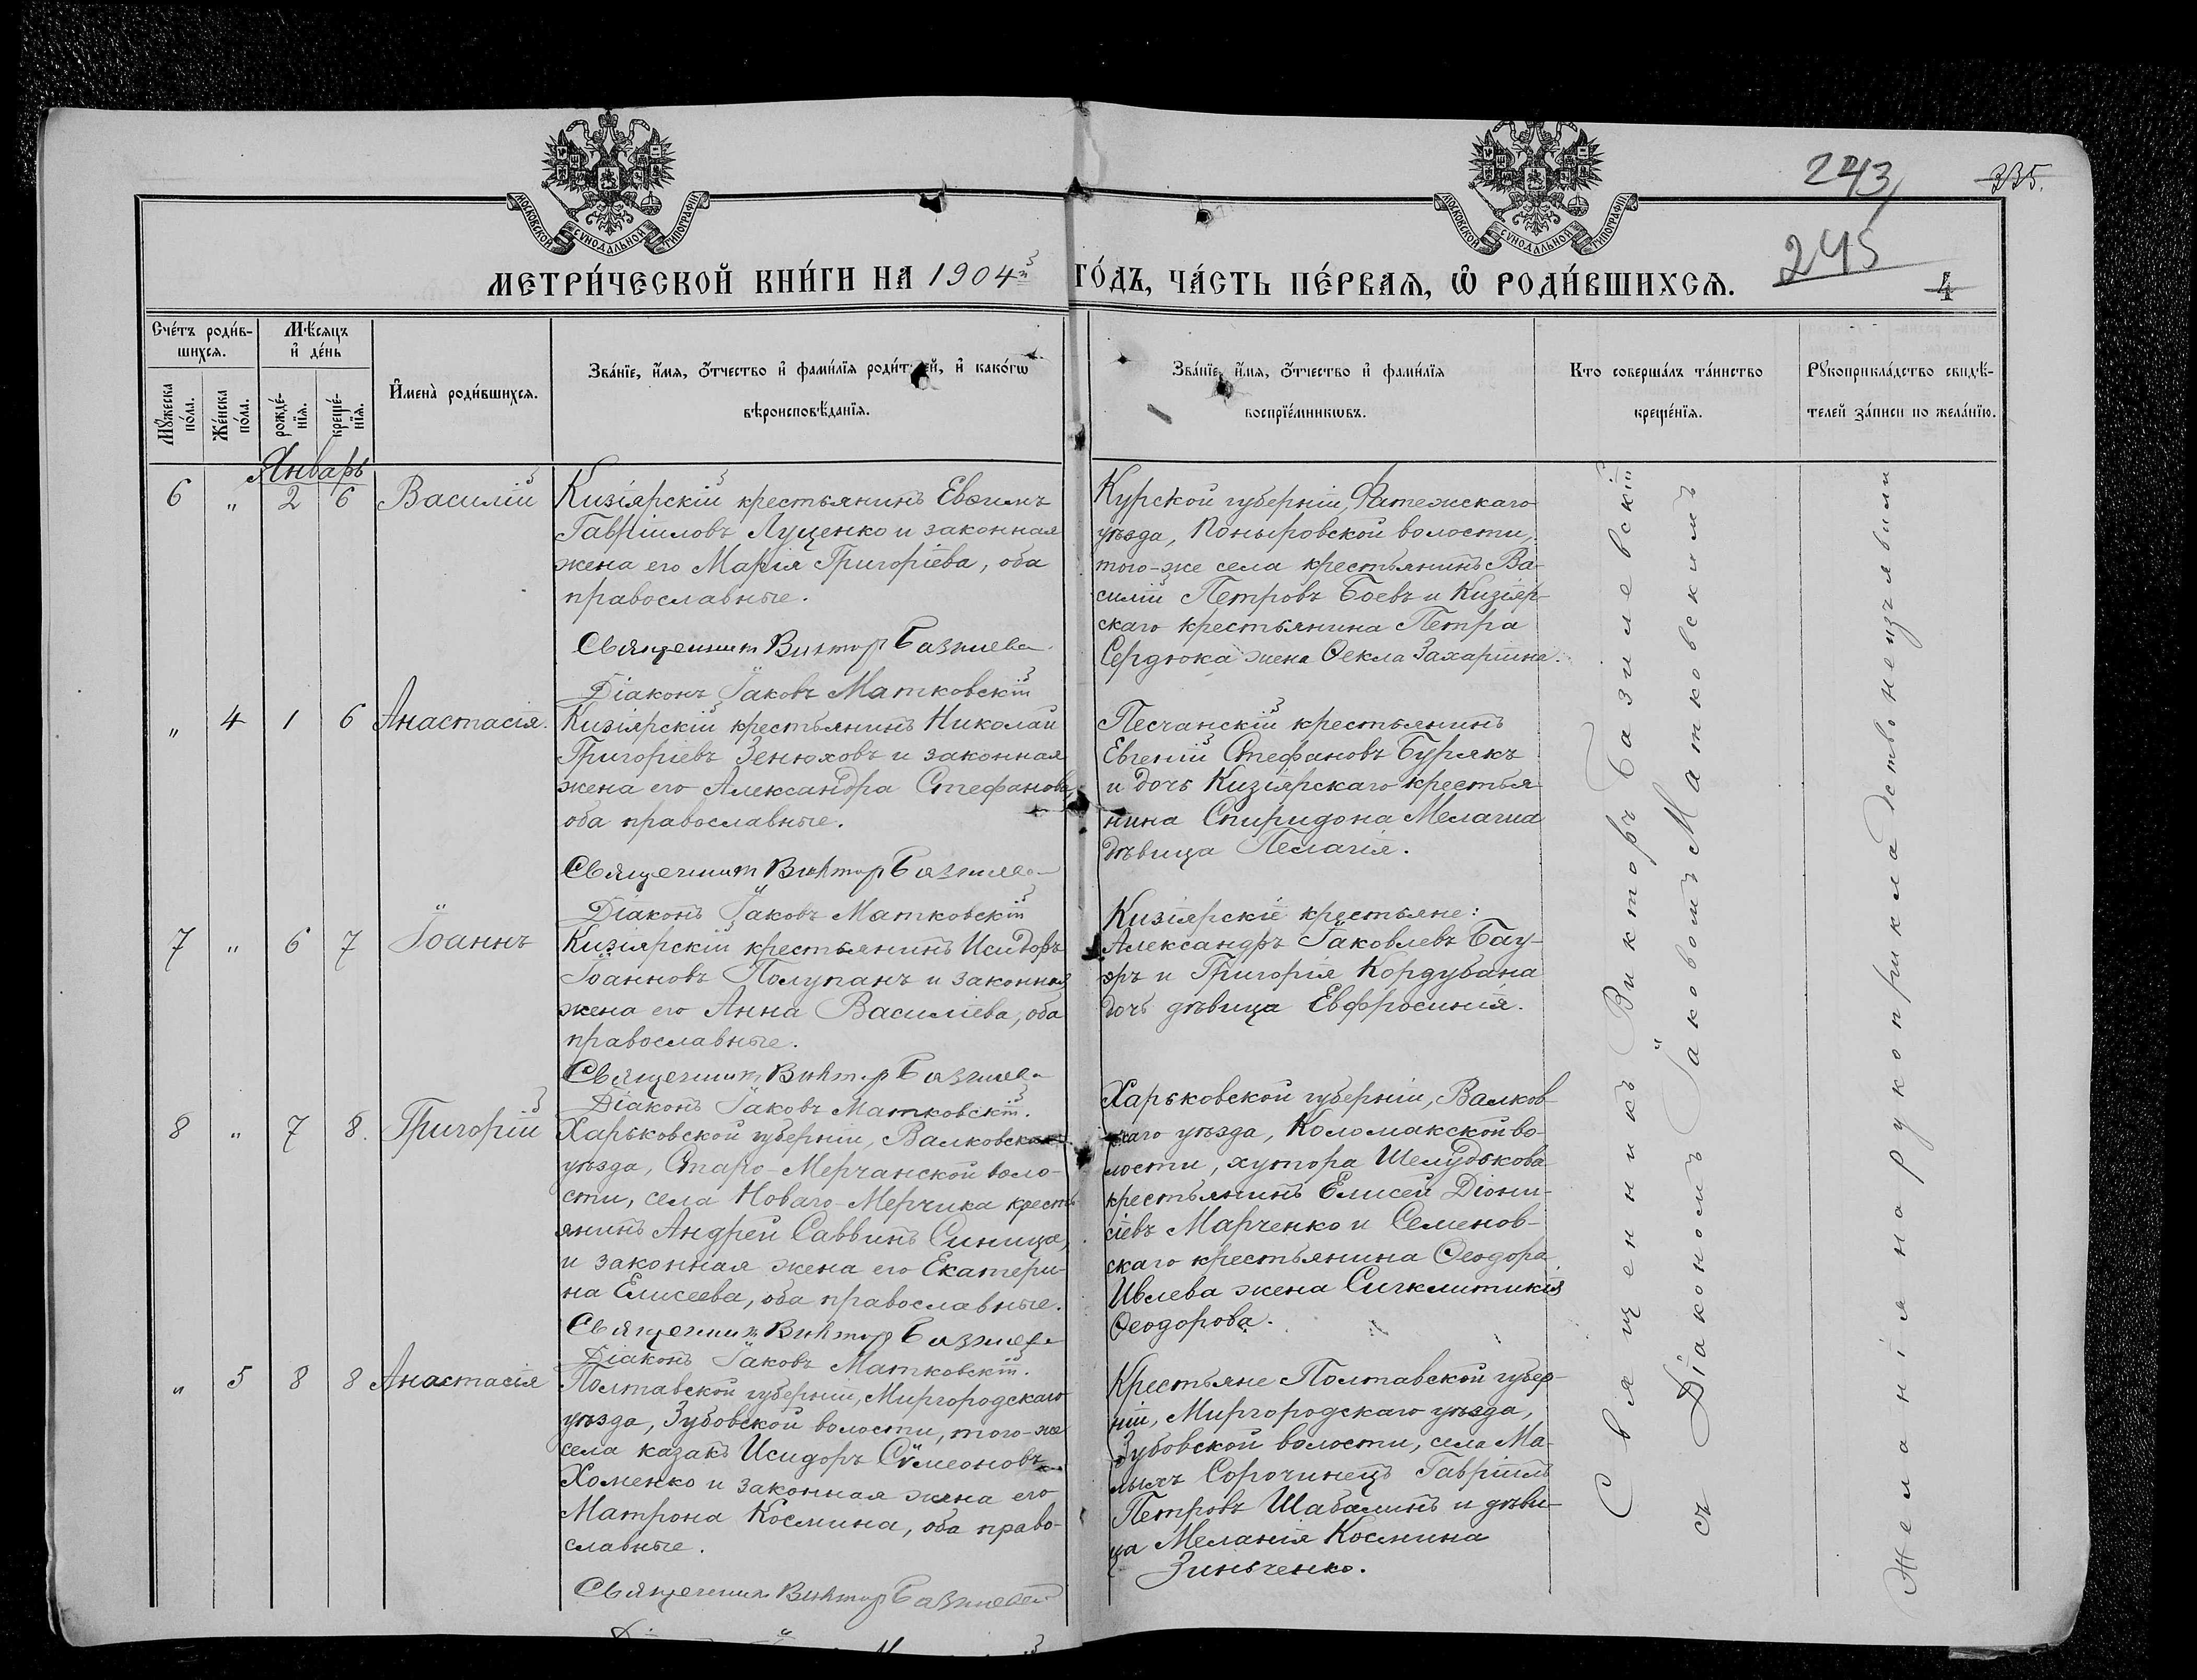 243
335.
245
4
МОСКОВСКОЙ СУНОДАЛЬНОЙ ТИПОГРАФІИ
МОСКОВСКОЙ СУНОДАЛЬНОЙ ТИПОГРАФІИ
МЕТРИ́ЧЕСКОЙ КНИ́ГИ НА 1904й ГО́ДЪ, ЧА́СТЬ ПЕ́РВАѦ, Ѡ҆ РОДИ́ВШИХСѦ.
Сче́тъ роди́в-
шихсѧ.
Мѣ́сѧцъ
и҆ де́нь
Мꙋ́жеска
по́ла.
Же́нска
по́ла.
рожде́-
нїѧ.
креще́-
нїѧ.
И҆мена̀ роди́вшихсѧ.
Зва́нїе, и҆́мѧ, ѻ҆́тчество и҆ фами́лїѧ роди́телей, и҆ како́гѡ
вѣроисповѣ́данїѧ.
Зва́нїе, и҆́мѧ, ѻ҆́тчество и҆ фами́лїѧ
воспрїе́мникѡвъ.
Кто соверша́лъ та́инство
креще́нїѧ.
Рꙋкоприкла́дство свидѣ́-
телей за́писи по жела́нїю.
Январь
6 " 2 6 Василій
Кизіярскій крестьянинъ Евѳимъ
Гавріиловъ Луценко и законная
жена его Марія Григоріева, оба
православные.
Священник Виктор Базилев
Діаконъ Іаковъ Матковскій
Курской губерніи, Фатежскаго
уѣзда, Поныровской волости,
того-же села крестьянинъ Ва-
силій Петровъ Боевъ и Кизіяр-
скаго крестьянина Петра
Сердюка жена Ѳекла Захаріина.
" 4 1 6 Анастасія.
Кизіярскій крестьянинъ Николай
Григоріевъ Зенюховъ и законная
жена его Александра Стефанова,
оба православные.
Священник Виктор Базилев
Діаконъ Іаковъ Матковскій
Песчанскій крестьянинъ
Евгеній Стефановъ Бурякъ
и дочь Кизіярскаго крестья-
нина Спиридона Мелагиа
дѣвица Пелагія.
7 " 6 7 Іоаннъ
Кизіярскій крестьянинъ Исидоръ
Іоанновъ Полупанъ и законная
жена его Анна Василіева, оба
православные.
Священник Виктор Базилев
Діаконъ Іаковъ Матковскій.
Кизіярскіе крестьяне:
Александръ Іаковлевъ Бау-
эръ и Григорія Кордубана
дочь дѣвица Евфросинія.
8 " 7 8. Григорій
Харьковской губерніи, Валковскаго
уѣзда, Старо-Мерчанской воло-
сти, села Новаго-Мерчика кресть-
янинъ Андрей Саввинъ Синица,
и законная жена его Екатери-
на Елисеева, оба православные.
Священник Виктор Базилев
Діаконъ Іаковъ Матковскій.
Харьковской губерніи, Валков-
скаго уѣзда, Коломакской во-
лости, хутора Шелудькова
крестьянинъ Елисей Діони-
сіевъ Марченко и Семенов-
скаго крестьянина Ѳеодора
Ивлева жена Сигклитикія
Ѳеодорова.
" 5 8 8 Анастасія
Полтавской губерніи, Миргородскаго
уѣзда, Зубовской волости, того-же
села казакъ Исидоръ Сѵмеоновъ
Хоменко и законная жена его
Матрона Космина, оба право-
славные.
Священник Виктор Базилев
Крестьяне Полтавской губер-
ніи, Миргородскаго уѣзда,
Зубовской волости, села Ма-
лыхъ Сорочинецъ Гавріилъ
Петровъ Шабалинъ и дѣви-
ца Меланія Космина
Зинченко.
Священникъ Викторъ Базилевскій
съ Діакономъ Іаковомъ Матковскимъ
Желанія на рукоприкладство не изъявили